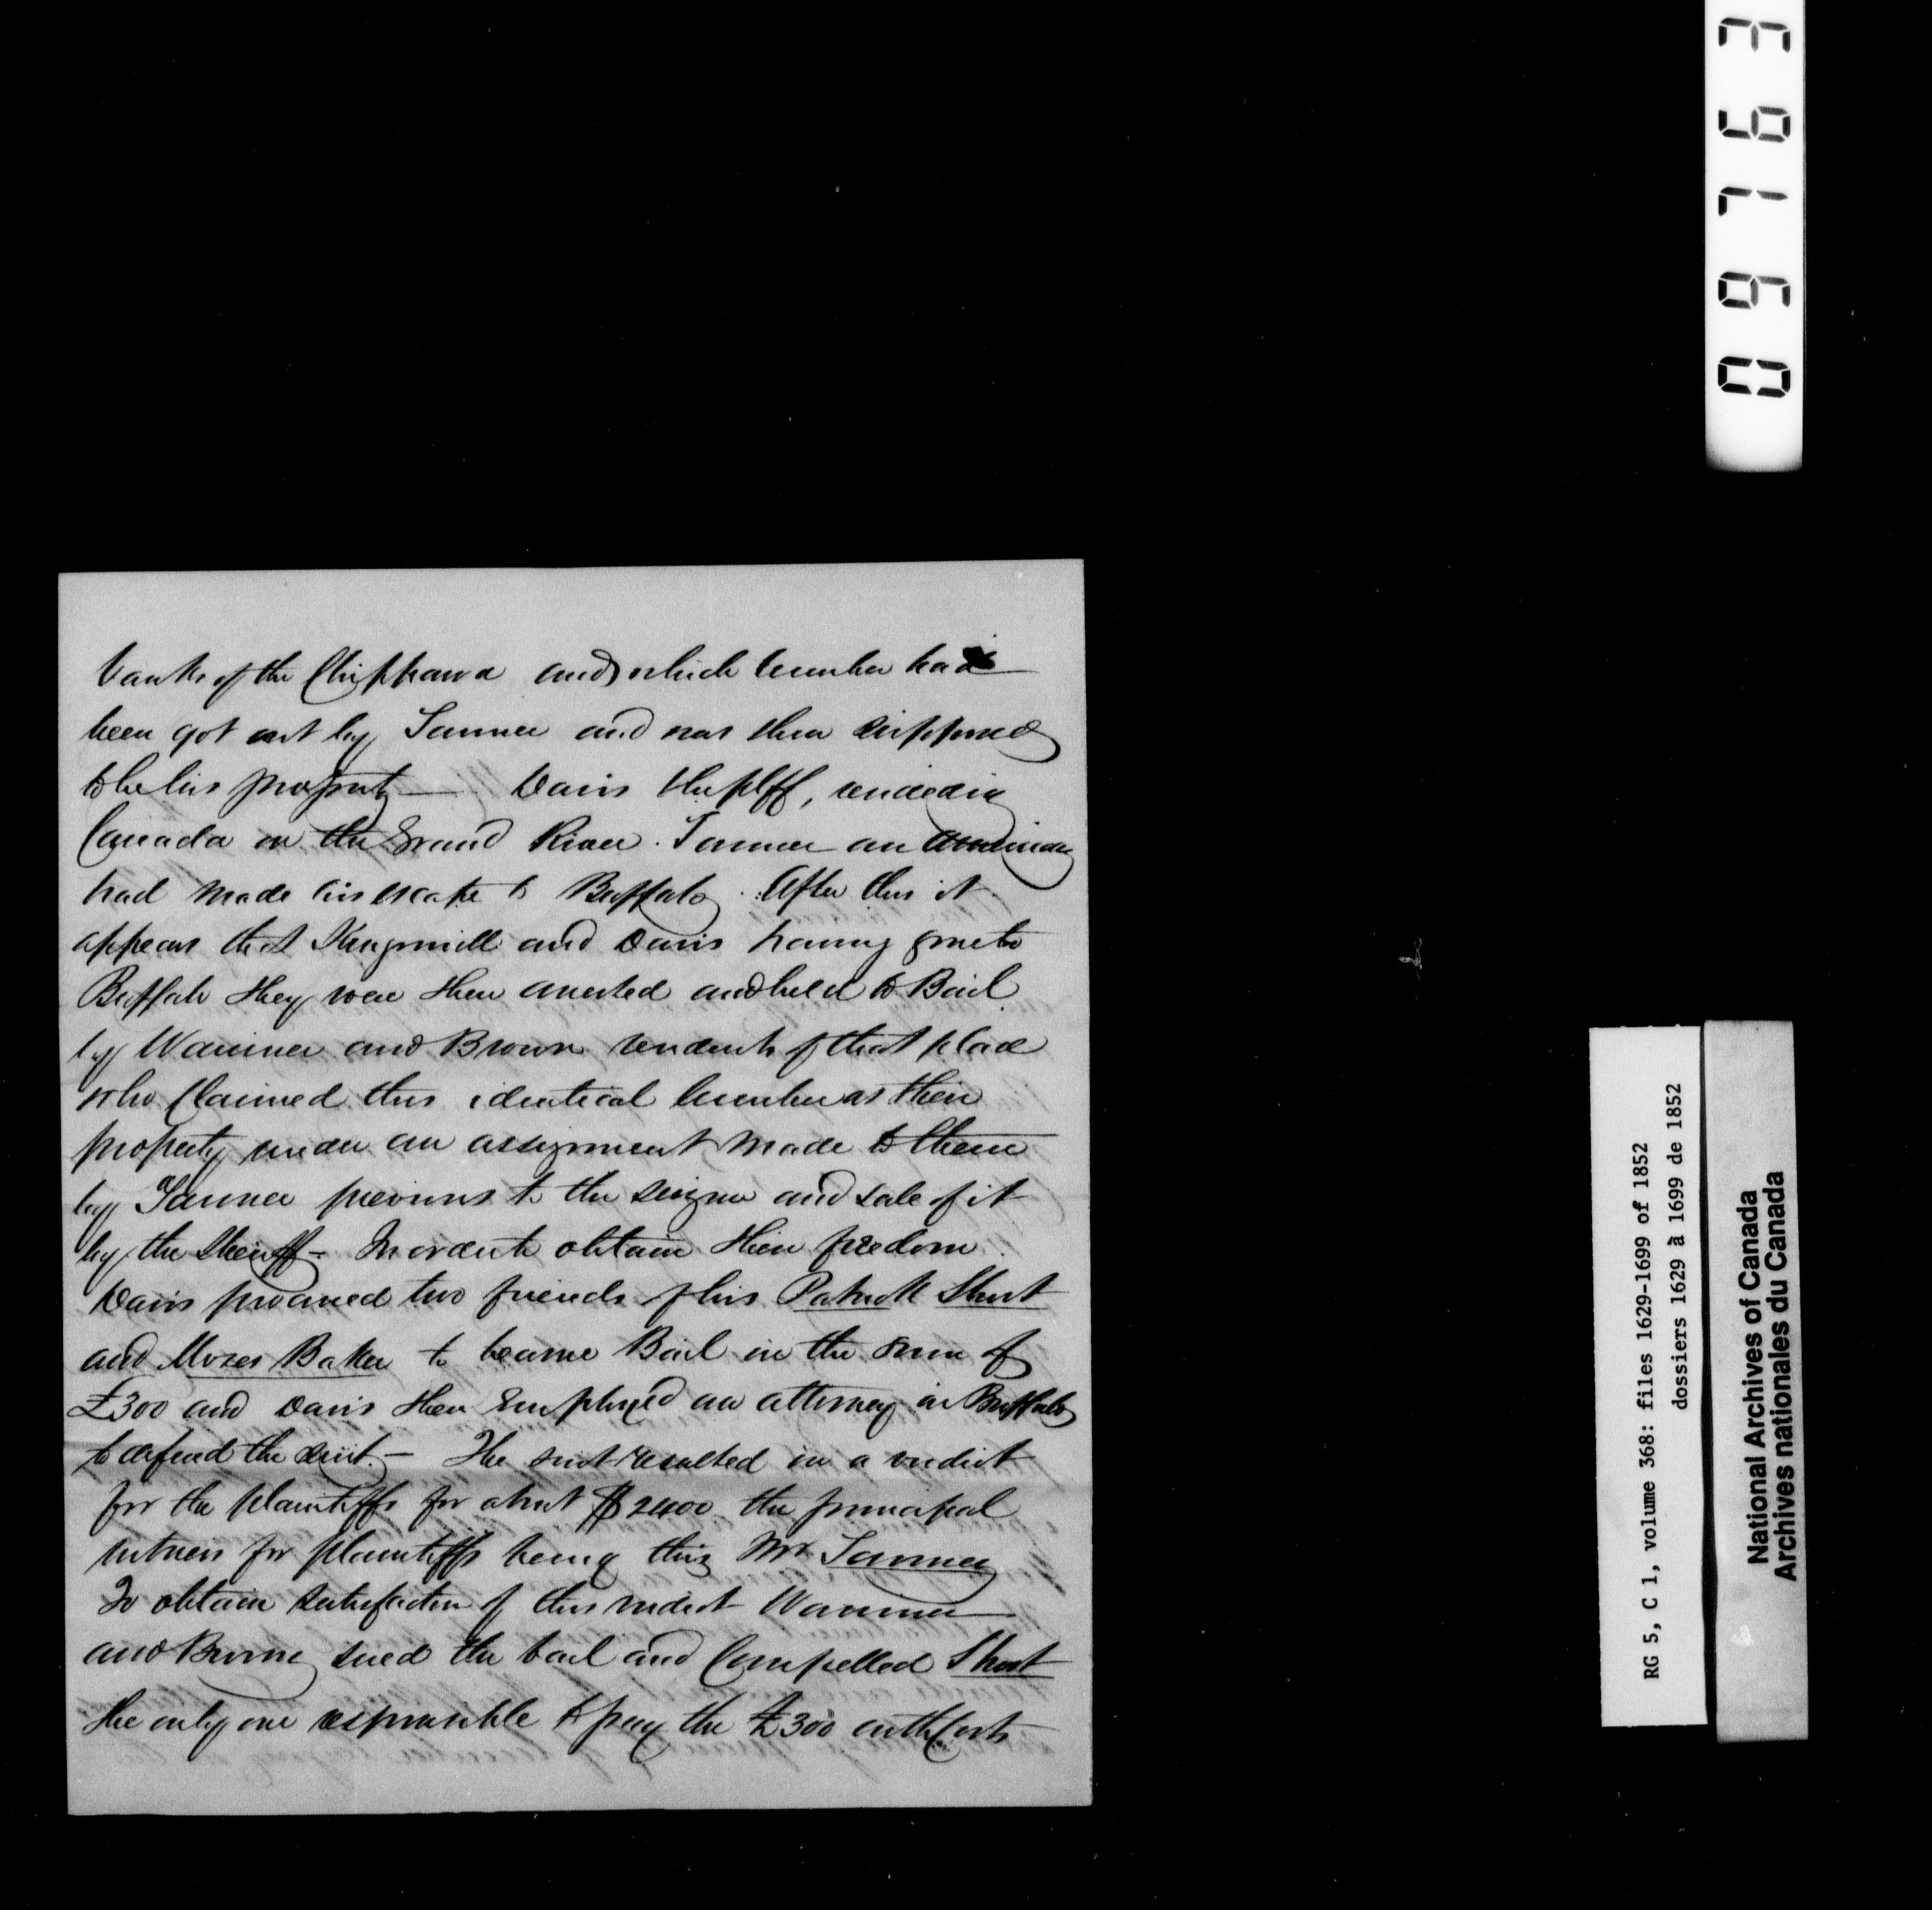 banks of the Chippawa and which lumber had
been got out by Tanner and was then supposed
to be his property — Davis the plff, resided in
Canada on the Grand River. Tanner an American
had made his escape to Buffalo. After this it
appears that Kingsmill and Davis having gone to
Buffalo they were then arrested and held to Bail
by Warriner and Brown residents of that place
who Claimed this identical lumber as their
property under an assignment made to them
by Tanner previous to the seizure and sale of it
by the Sheriff – In order to obtain their freedom
Davis procured two friends of his Patrick Short
and Moses Baker to become Bail in the sum of
£300 and Davis then Employed an attorney in Buffalo
to defend the suit. – The suit resulted in a verdict
for the plaintiffs for about $2400 the principal
witness for plaintiffs being this Mr Tanner
To obtain satisfaction of this verdict Warriner
and Brown sued the bail and Compelled Short
the only one responsible to pay the £300 with Costs
09763
RG 5, C 1, volume 368: files 1629-1699 of 1852
dossiers 1629 à 1699 de 1852
National Archives of Canada
Archives nationales du Canada